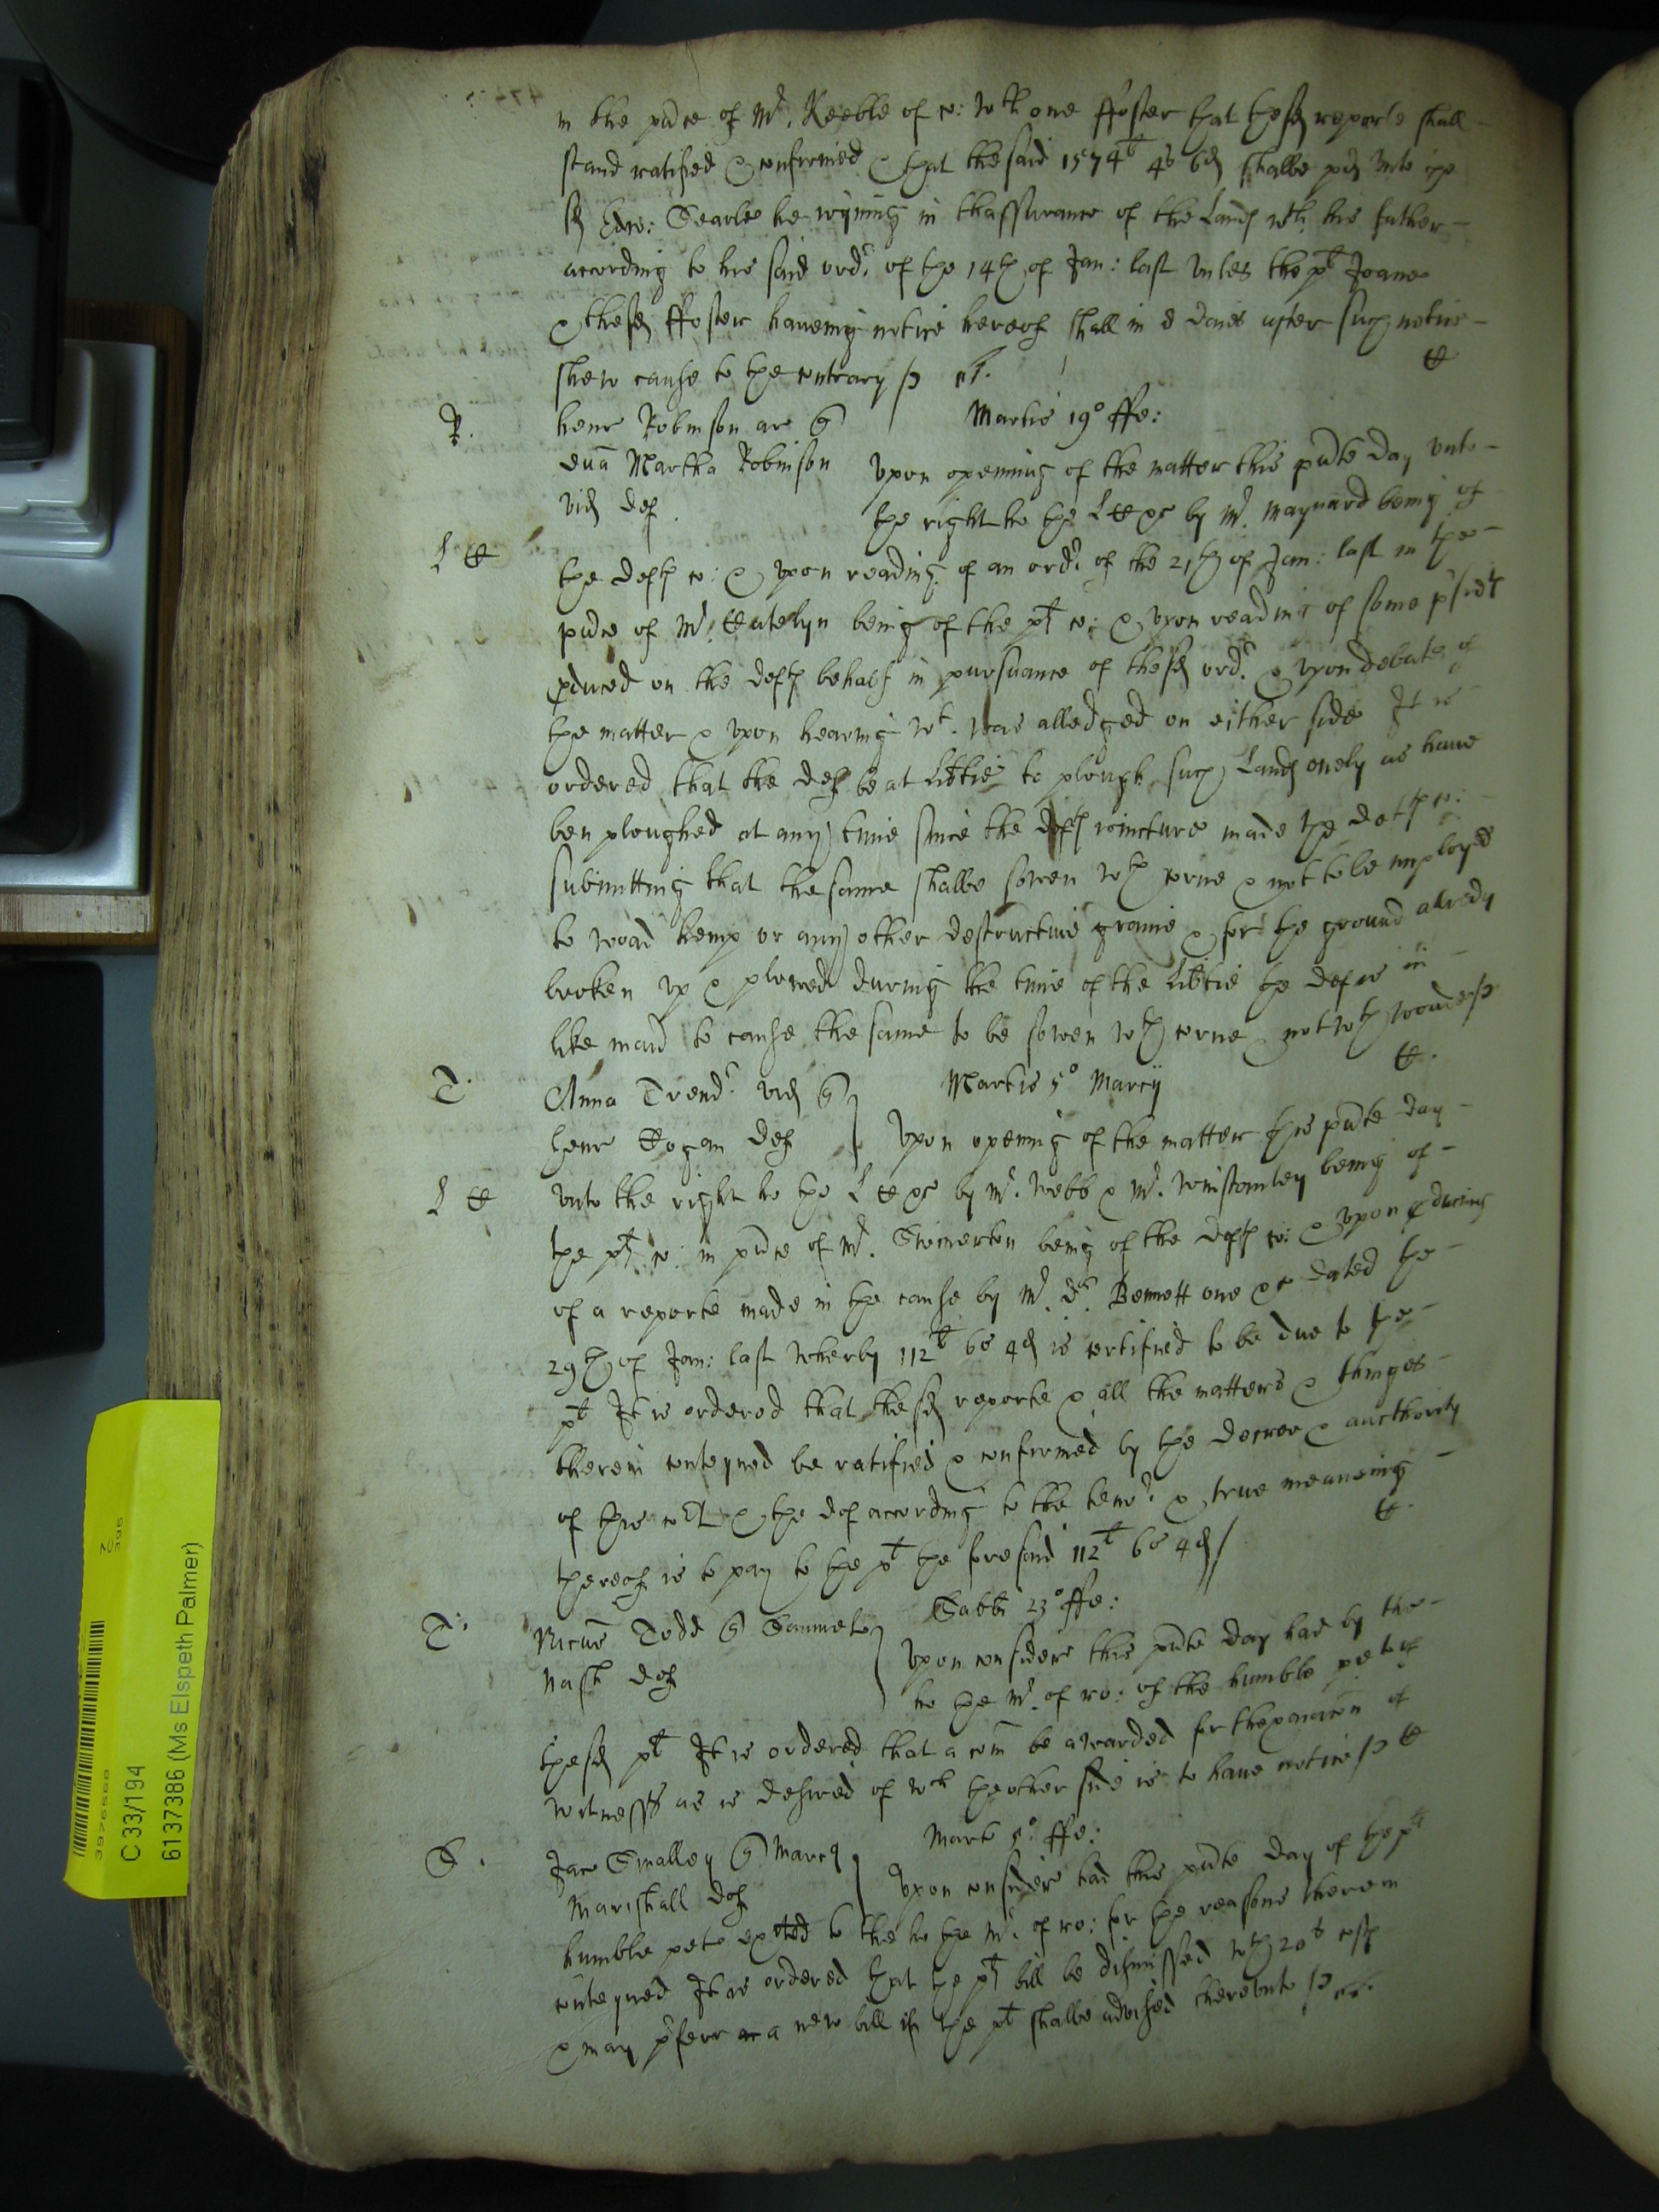 in the pñce of Mr. Keeble of co: wch one ffoster that the sd reporte shall
stand ratified & confirmed & that the said 1574li 4s 6d shalbe pd unto the
sd Edw: Searle he ioyning in thassurance of the Lands wth his father
according to the said ordr. of the 14th of Jan: last unles the plt Joane
& the sd ffoster haveing notice hereof shall in 8 daies after such notice
shew cause to the contrary
R.
Henr Robinson ar
Martis 19o ffe:
Martha Robinson
vid def
Upon openinng of the matter this pñte day unto
the right ho the L &c by Mr. Maynard being of
L
the defts co: & upon reading of an ordr of the 21th of Jan: last in the
pñce of Mr. being of the plt co: & upon reading of some
pduced on the defts behalf in pursuance of the sd ordr. & upon debate of
the matter & upon hearing wt. was alledged on either side It is
ordered that the def be at libtie to plough such Lands onely as have
ben ploughed at any time since the defts ioincture made the co:
submitting that the same shalbe sowen wth corne & not to be imployed
to woad hemp or any other destructive graine & for the ground alredy
broken up & plowed during the time of the Libtie the def is in
like mañ to cause the same to be sowen wth corne not wth woade
T.
Anna Trendr vid
Martis 5o Marcij
Henr def
Upon opening of the matter this pñte day
L
unto the right ho the L &c by Mr. Webb & Mr. being of
the plt co: in pñce of Mr. being of the defts co: & upon pducing
of a reporte made in the cause by Mr. Dr. Bennett one &c dated the
29th of Jan: last wherby 112li 6s 4d is certified to be due to the
plt It is ordered that the sd reporte & all the matters & thinges
therein conteyned be ratified & confirmed by the decree & aucthority
of this cort & the def according to the tenor. & true meaneing
thereof is to pay to the plt the foresaid 112li 6s 4d
T.
Ricus Todd Samuel
Sabbi 23o ffe:
Nash def
Upon consideñ this pñte day had by the
ho the Mr. of ro: of the humble of
the sd plt It is ordered that a com be awarded for of
witnesses as is desired of wch the other side is to have notice
S.
Jaco Smalley
Mart 5o ffe:
Marishall def
Upon consideñ had this pñte day of the plts
humble peto to the ho the Mr. of ro: for the reasons therein
conteyned It is ordered that the plts bill be dismissed wth 20s costs
& may pferr a new bill if the plt shalbe advised therevnto
C 33/194
6137386 (Ms Elspeth Palmer)